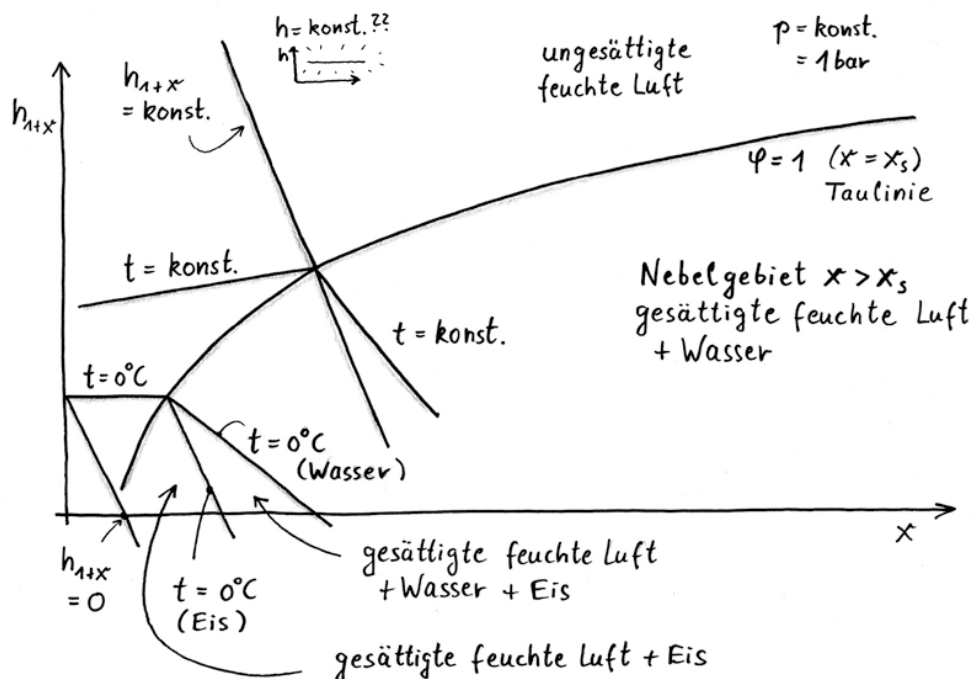 h = konst. ??
h
ungesättigte
feuchte Luft
p = konst.
= 1 bar
h₁₊ₓ
h₁₊ₓ
= konst.
φ = 1 (x = xₛ)
Taulinie
t = konst.
Nebelgebiet x > xₛ
gesättigte feuchte Luft
+ Wasser
t = konst.
t = 0°C
t = 0°C
(Wasser)
x
h₁₊ₓ
= 0
t = 0°C
(Eis)
gesättigte feuchte Luft
+ Wasser + Eis
gesättigte feuchte Luft + Eis